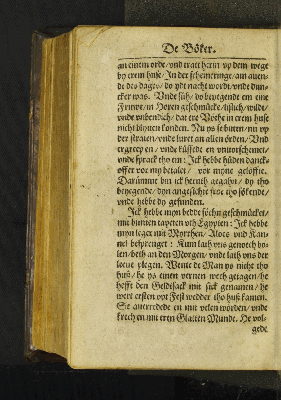 De Böker.
an einem orde / vnd tratt herin vp dem wege
by erem huse / In der schemeringe / am auen-
de des dages / do ydt nacht wordt / vnde dun-
cker was. Vnde süh / do beyegende em eine
Fruwe / in Horen geschmücke / listich / wildt /
vnde vnbendich / dat ere Vöthe in erem huse
nicht blyuen konden. Nu ys se buten / nu vp
der straten / vnde luret an allen orden / Vnd
ergreep en / vnde küssede en vnuorschemet /
vnde sprack tho em: Ick hebbe hüden danck-
offer vor my betalet / vor myne geloffte.
Darümme bin ick heruth gegahn / dy tho
beyegende / dyn angesichte froe tho sökende /
vnde hebbe dy gefunden.
Ick hebbe myn bedde schön geschmücket /
mit bunten tapeten vth Egypten: Ick hebbe
myn leger mit Myrrhen / Aloes vnd Kan-
nel besprenget: Kum lath vns genoech bo-
len / beth an den Morgen / vnde lath vns der
leeue plegen. Wente de Man ys nicht tho
huß / he ys einen vernen wech getagen / he
hefft den Geldtsack mit sick genamen / he
wert ersten vp't Fest wedder tho huß kamen.
Se auerredede en mit velen wörden / vnde
kreech en mit erem Gladden Munde. He vol-
gede